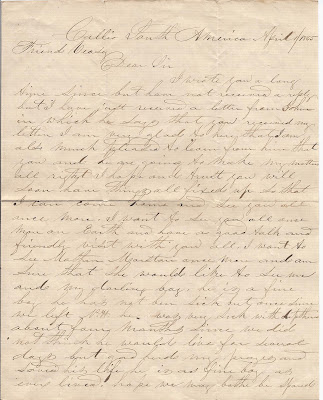 Callio South America April 1/85
Friend Veasy
Dear Sir
I wrote you a long
time Since but ham not received a reply
but I have Just received a letter from John
in which he Says that you received my
letter I am very glad to hear that I am
also much pleased to learn from him that
you and he are going to make my matters
all right I hope and trust you will
Soon have things all fixed up So that
I can come home and See you all
once more. I want to See you all once
more on Earth and have a good talk and
friendly visit with you all I want to
See Mother once more and am
Sure that She would like to See me
and my darling boy. he is a fine
boy he has not ben Sick but once Since
we left he was very Sick with
about four Months Since we did
not think he would live for several
days but god heard my prayers and
Saved his life he is as fine boy as
ever lived. hope we may bothe be Spared